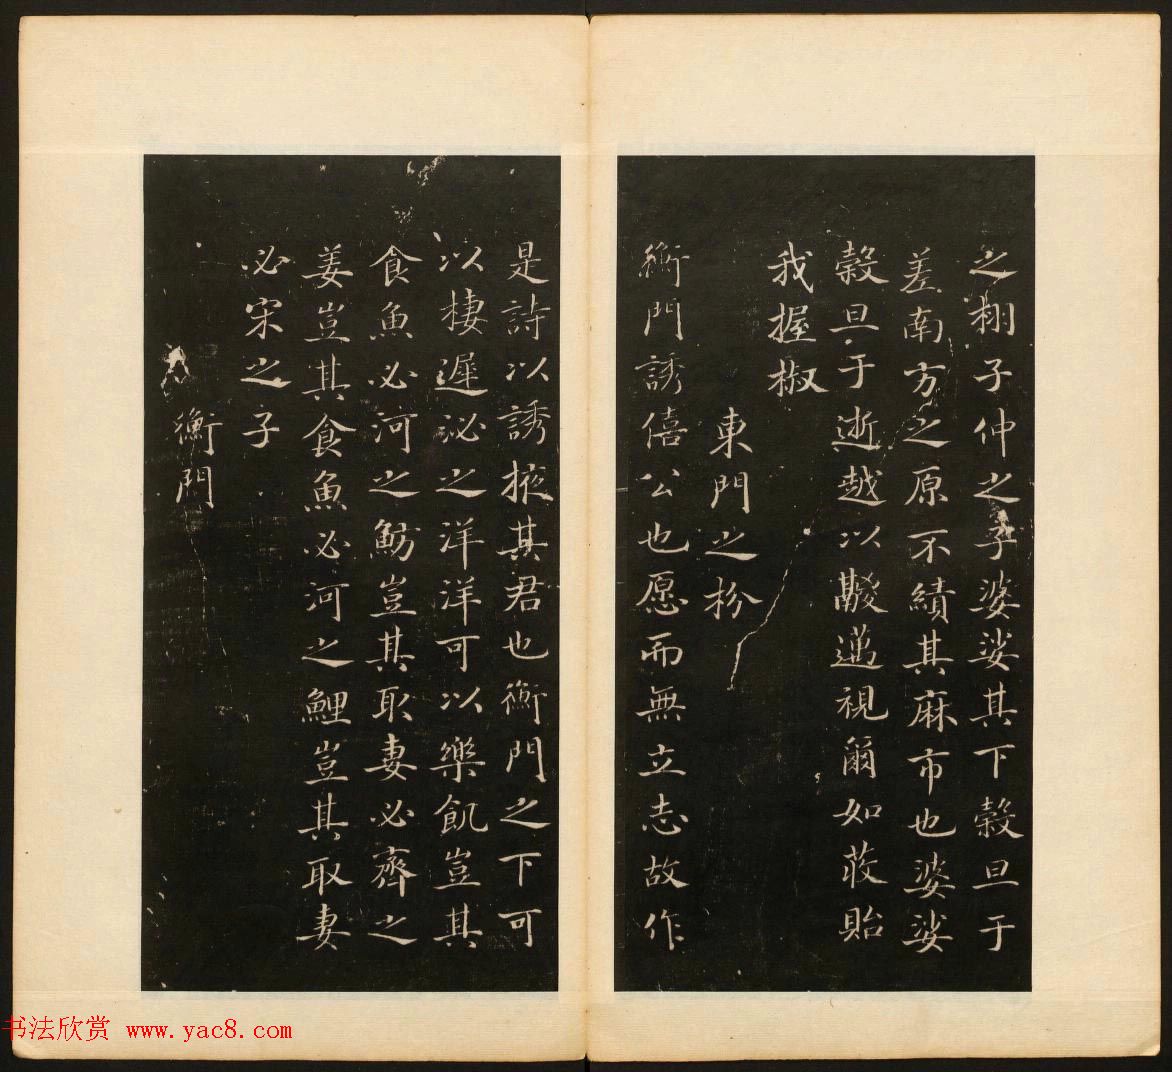 之栩子仲之子婆娑其下榖旦于
差南方之原不績其麻市也婆娑
榖旦于逝越以鬷邁視爾如荍貽
我握椒
東門之枌
衡門誘僖公也愿而無立志故作
是詩以誘掖其君也衡門之下可
以棲遲泌之洋洋可以樂飢豈其
食魚必河之魴豈其取妻必齊之
姜豈其食魚必河之鯉豈其取妻
必宋之子
衡門
书法欣赏 www.yac8.com